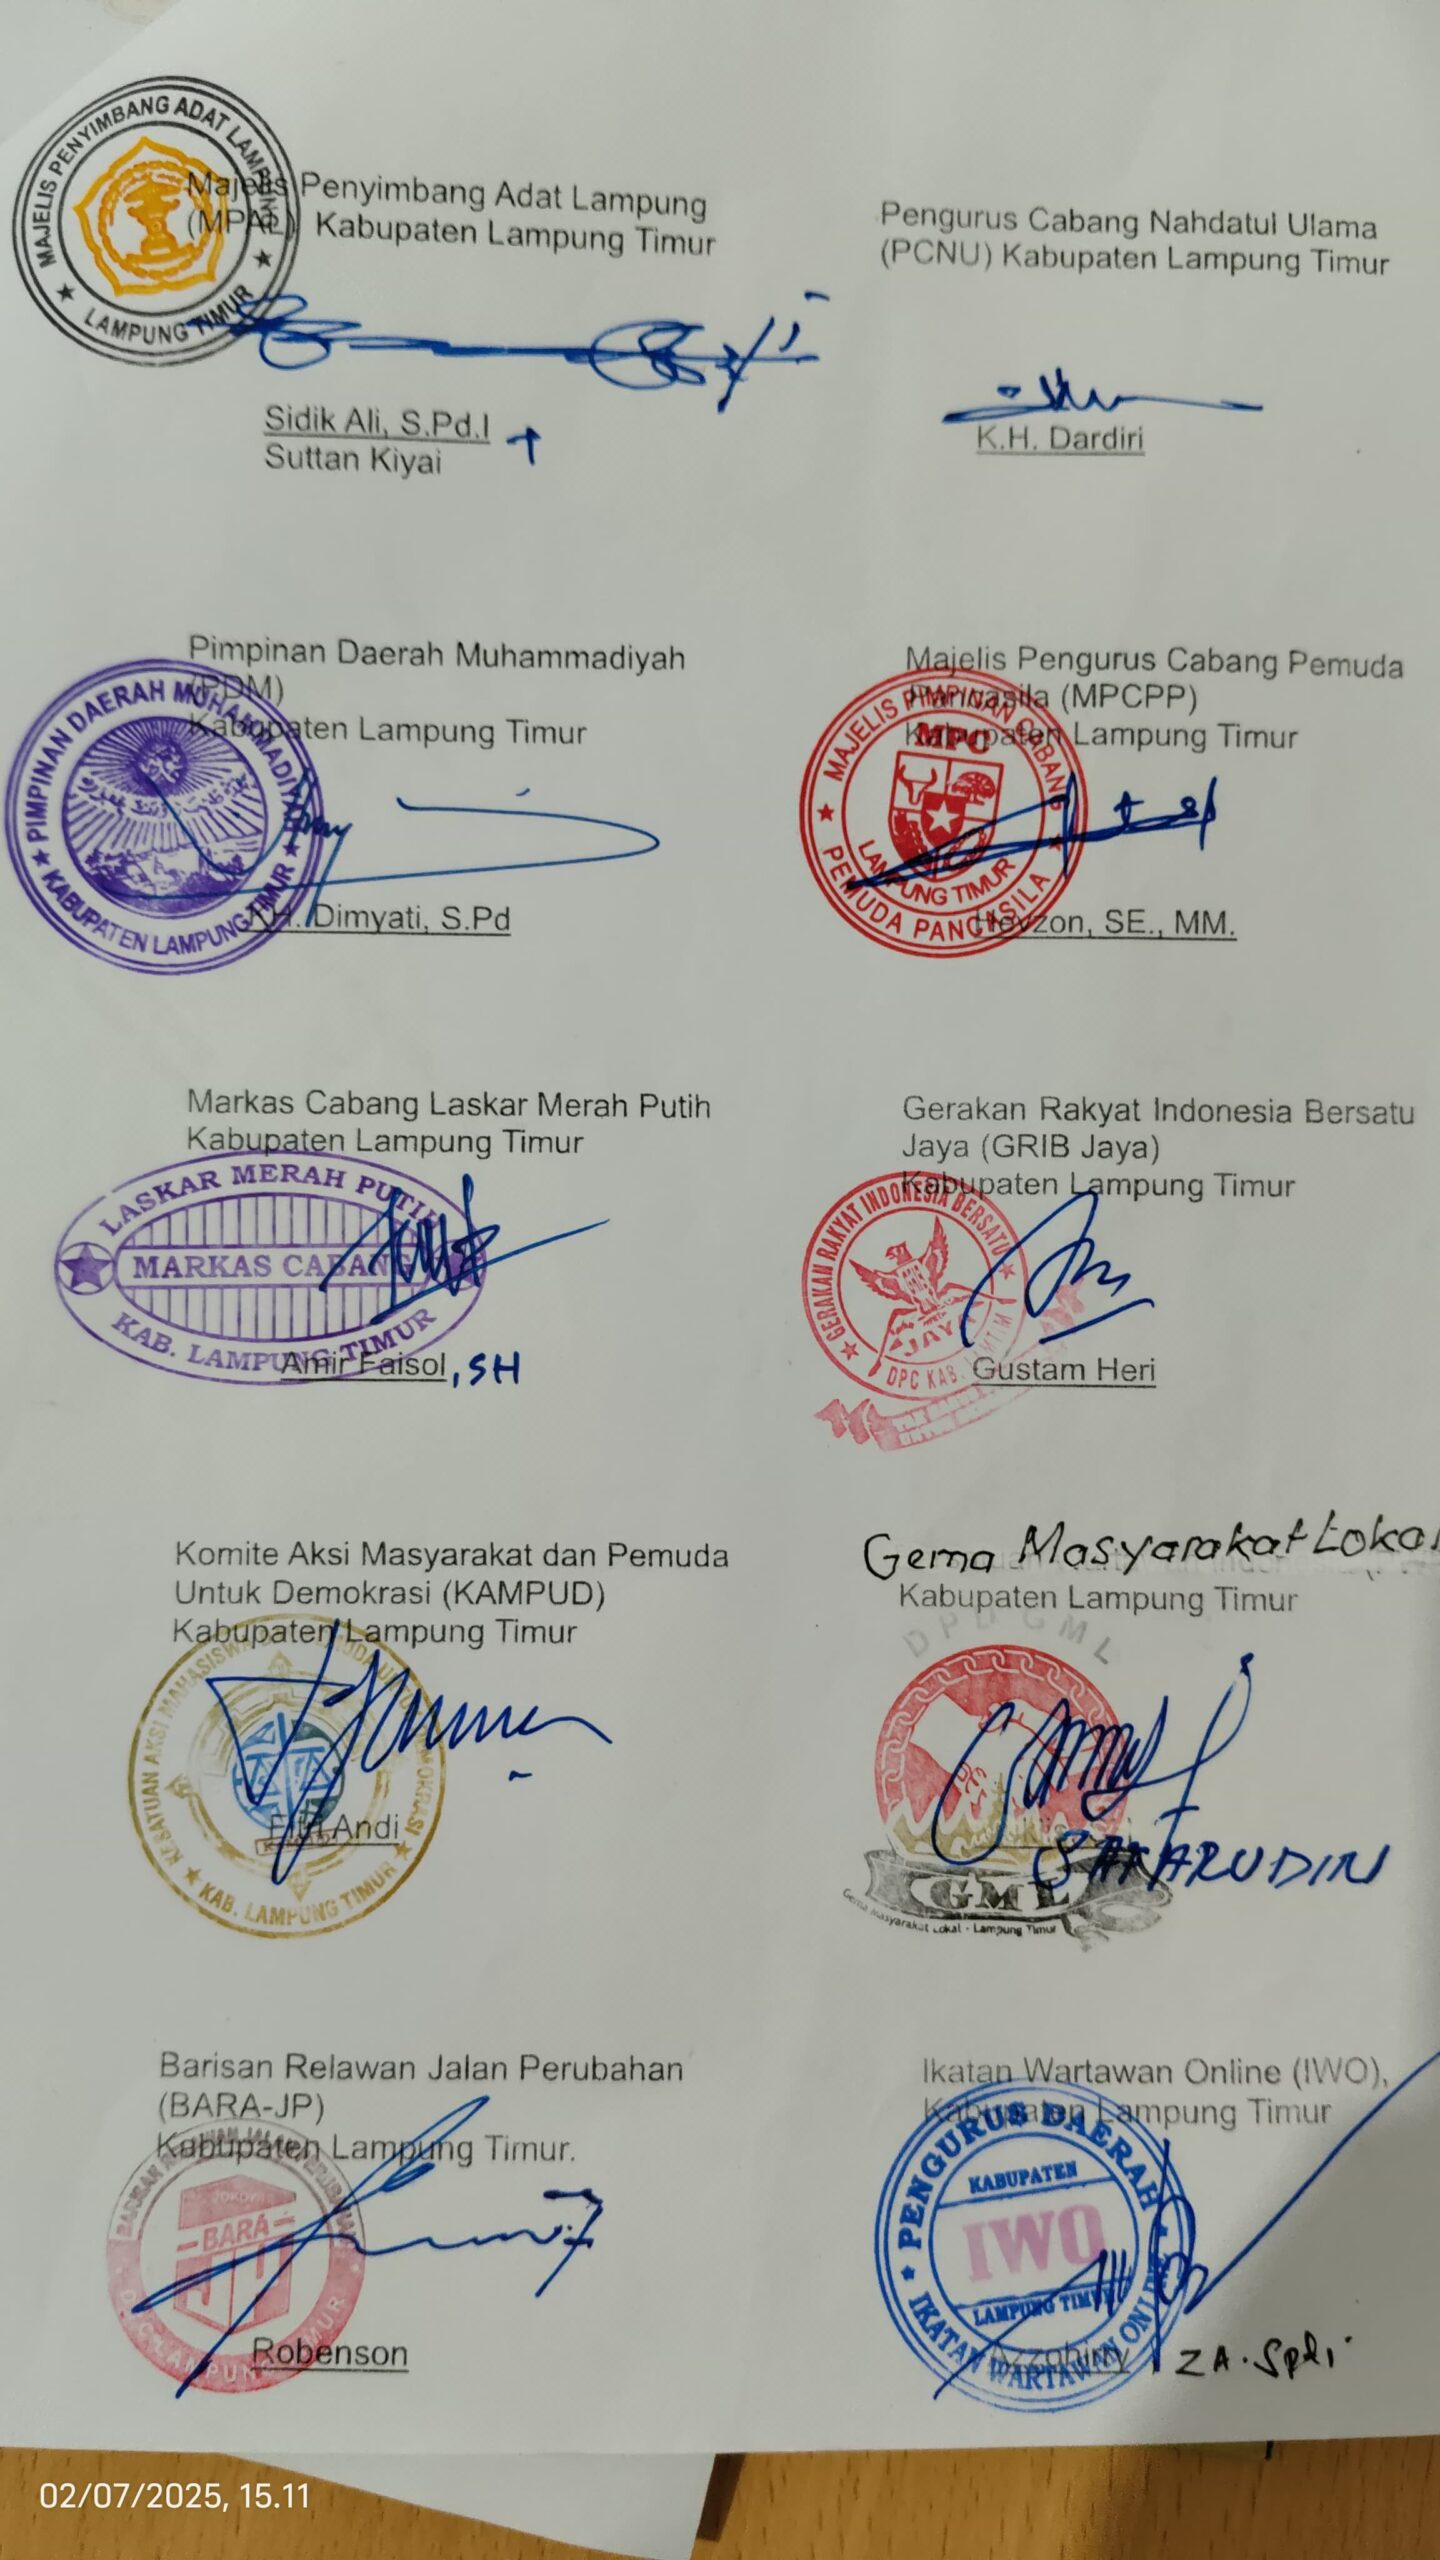 MAJELIS PENYIMBANG ADAT LAMPUNG
LAMPUNG TIMUR
Majelis Penyimbang Adat Lampung
(MPAL) Kabupaten Lampung Timur
Sidik Ali, S.Pd.I
Suttan Kiyai
Pengurus Cabang Nahdatul Ulama
(PCNU) Kabupaten Lampung Timur
K.H. Dardiri
Pimpinan Daerah Muhammadiyah
(PDM)
Kabupaten Lampung Timur
PIMPINAN DAERAH MUHAMMADIYAH
KABUPATEN LAMPUNG TIMUR
KH. Dimyati, S.Pd
Majelis Pengurus Cabang Pemuda
Pancasila (MPCPP)
Kabupaten Lampung Timur
MAJELIS PIMPINAN CABANG
MPC
LAMPUNG TIMUR
PEMUDA PANCASILA
Hevzon, SE., MM.
Markas Cabang Laskar Merah Putih
Kabupaten Lampung Timur
LASKAR MERAH PUTIH
MARKAS CABANG
KAB. LAMPUNG TIMUR
Amir Faisol, SH
Gerakan Rakyat Indonesia Bersatu
Jaya (GRIB Jaya)
Kabupaten Lampung Timur
GERAKAN RAKYAT INDONESIA BERSATU
JAYA
DPC KAB. LAMTIM
Gustam Heri
Komite Aksi Masyarakat dan Pemuda
Untuk Demokrasi (KAMPUD)
Kabupaten Lampung Timur
KESATUAN AKSI MAHASISWA
KAB. LAMPUNG TIMUR
Fitri Andi
Gema Masyarakat Lokal
Kabupaten Lampung Timur
DPD GML
SAFARUDIN
GML
Gema Masyarakat Lokal - Lampung Timur
Barisan Relawan Jalan Perubahan
(BARA-JP)
Kabupaten Lampung Timur.
BARA
JP
Robenson
Ikatan Wartawan Online (IWO),
Kabupaten Lampung Timur
PENGURUS DAERAH
KABUPATEN
IWO
LAMPUNG TIMUR
IKATAN WARTAWAN ONLINE
Azzohirry ZA. Spdi
02/07/2025, 15.11